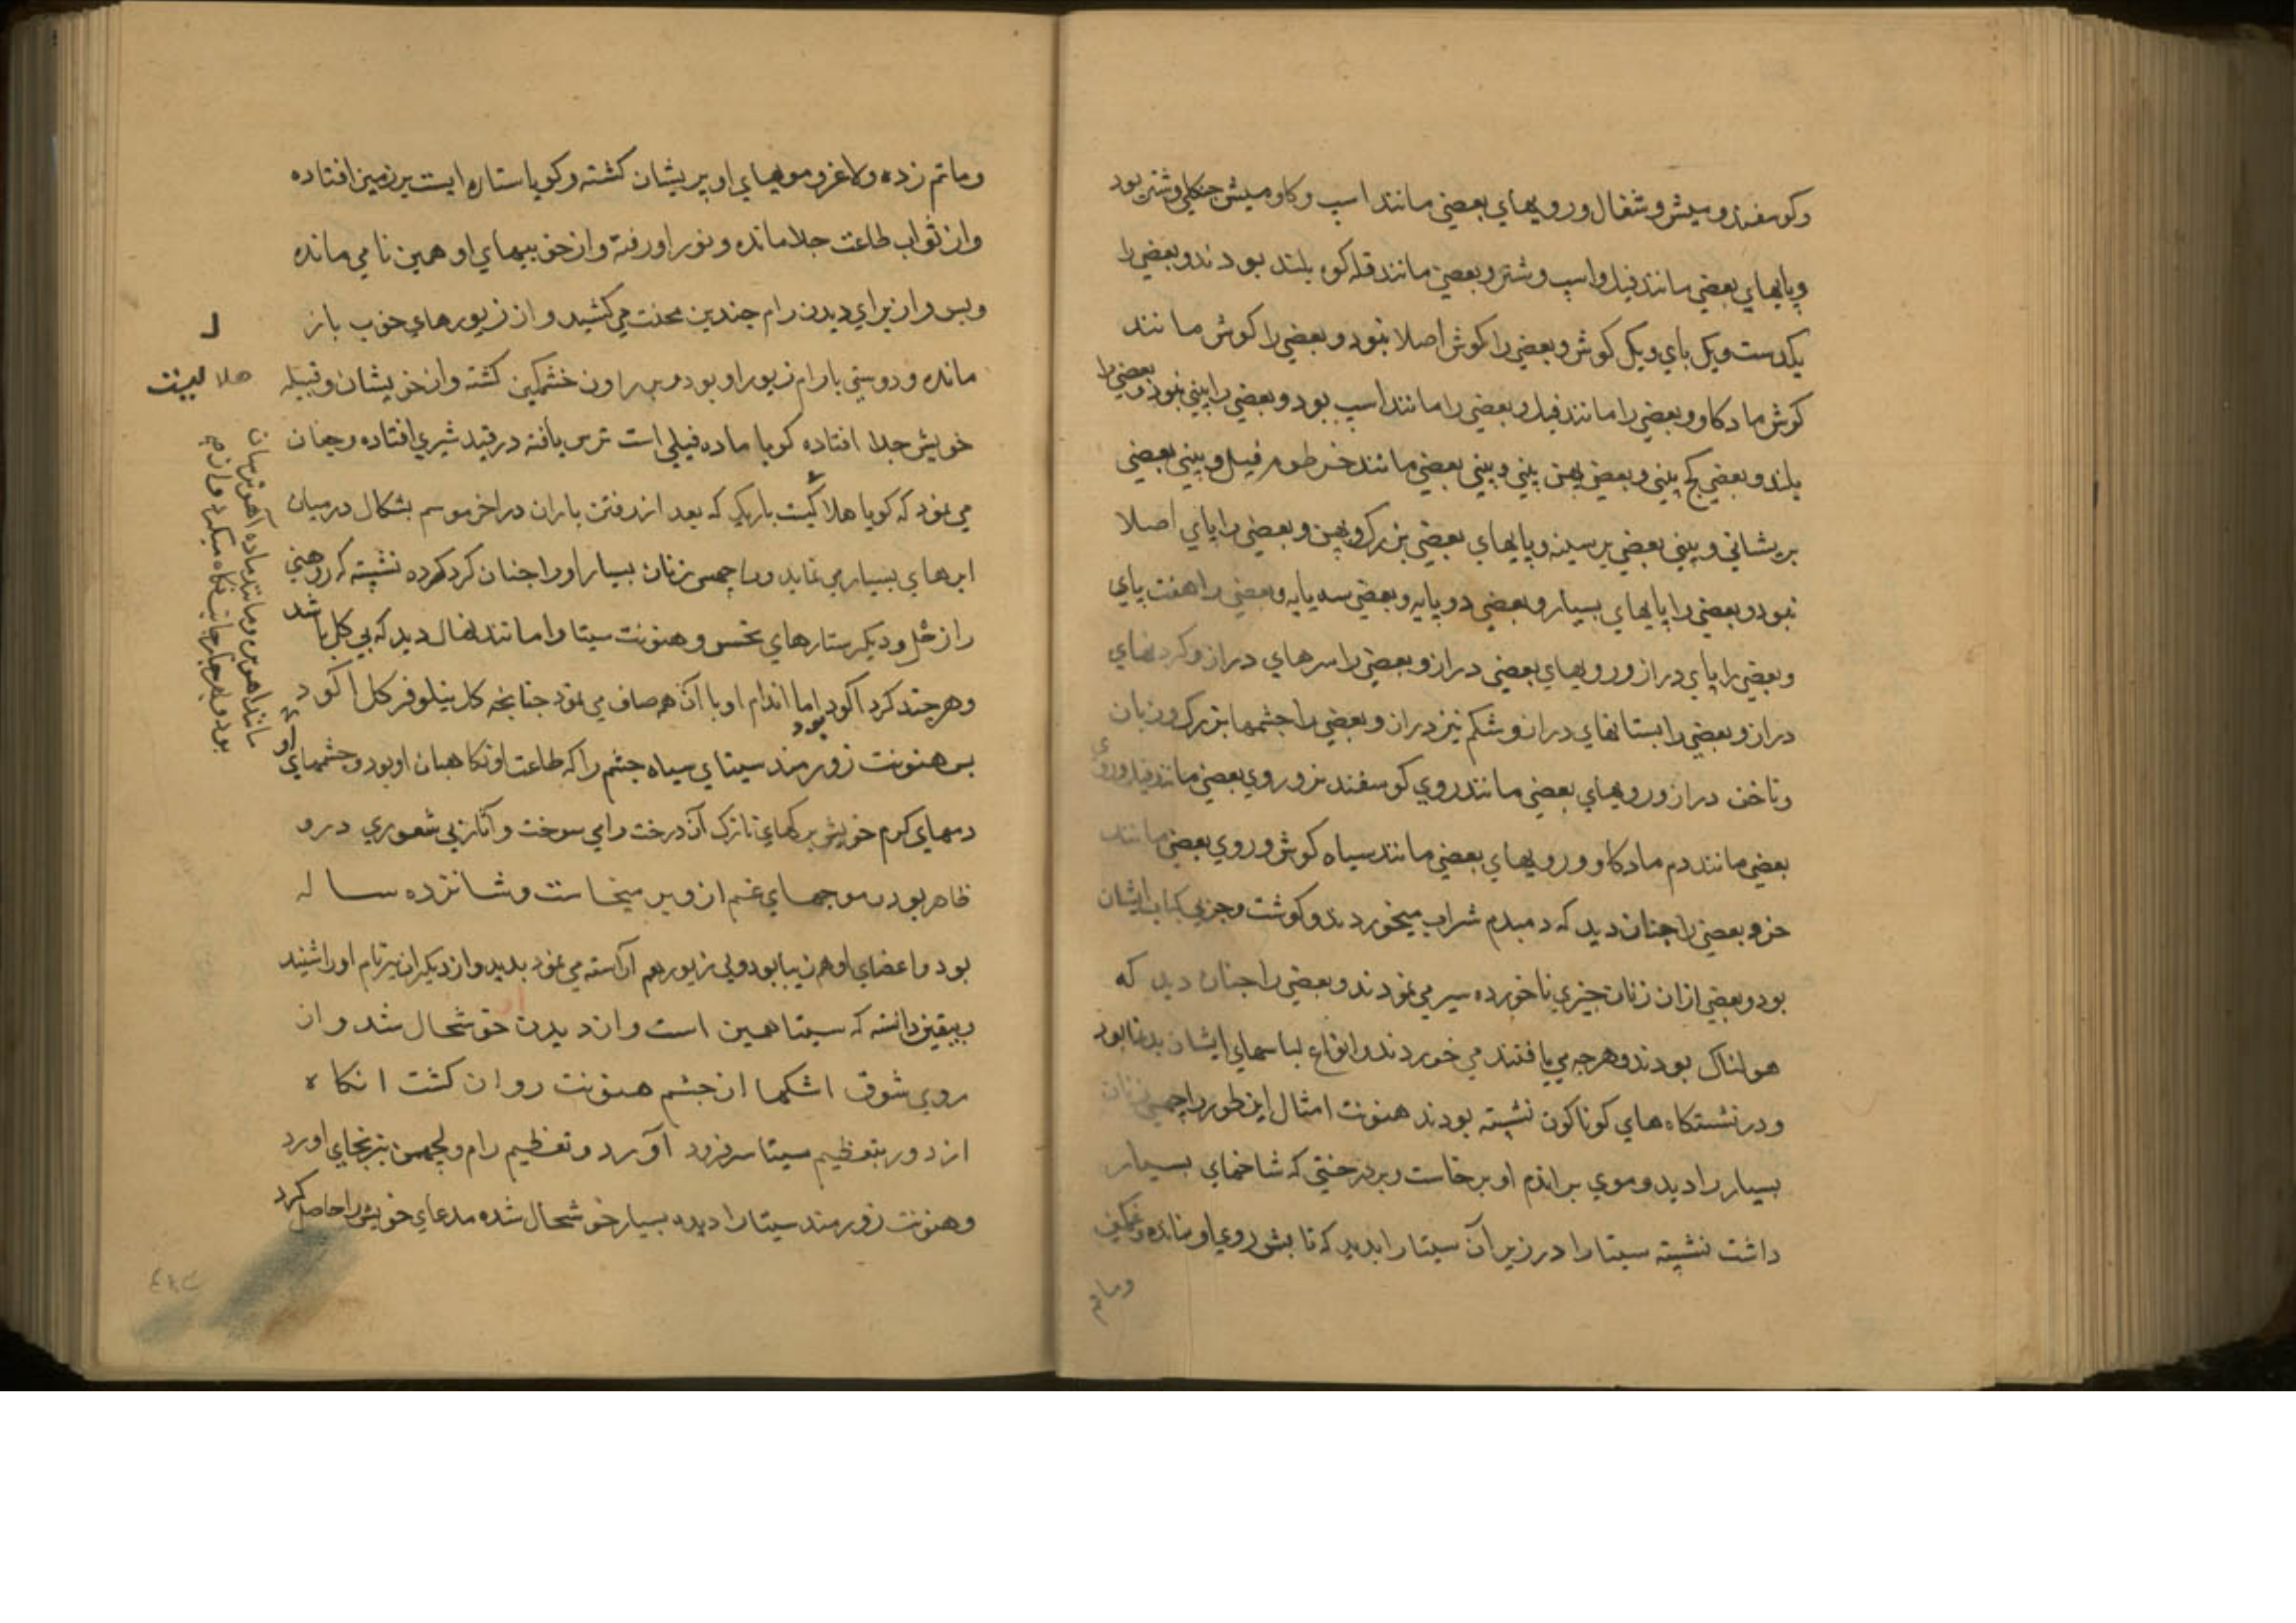 وکوسفند و میش و شغال و رویهای بعضی مانند اسپ و کاومیش جنکلی و شتر بود
و پایهای بعضی مانند فیل و اسپ و شتر و بعضی مانند قله کوه بلند بودند و بعضی را
یکدست و یک پای و یک کوش و بعضی را کوش اصلا نبود و بعضی را کوش مانند
کوش ماد کاو و بعضی را مانند فیل و بعضی را مانند اسپ بود و بعضی را بینی نبود و بعضی را
بلند و بعضی کج بینی و بعضی پهن بینی و بینی بعضی مانند خرطوم فیل و بینی بعضی
بر پشانی و بینی بعضی بر سینه و پایهای بعضی بزرک و پهن و بعضی را پای اصلا
نبود و بعضی را پایهای بسیار و بعضی دو پایه و بعضی سه پایه و بعضی را هفت پای
و بعضی را پای دراز و رویهای بعضی دراز و بعضی را سرهای دراز و کردنهای
دراز و بعضی را بستانهای دراز و شکم نیز دراز و بعضی را جشمها بزرک و زبان
و ناخن دراز و رویهای بعضی مانند روی کوسفند نر و روی بعضی مانند فیل و روی
بعضی مانند دم ماد کاو و رویهای بعضی مانند سیاه کوش و روی بعضی مانند
خر و بعضی را جنان دید که دمبدم شراب میخوردند و کوشت و جربی کباب ایشان
بود و بعضی ازان زنان جیزی ناخورده سیر می نمودند و بعضی را جنان دید که
هولناک بودند و هرجه می یافتند می خوردند و انواع لباسهای ایشان بدنما بود
و در نشستکاه های کوناکون نشسته بودند هنونت امثال این طور راجهسی زنان
بسیار را دید و موی بر اندم او برخاست و بر درختی که شاخهای بسیار
داشت نشسته سیتا را در زیر آن سیتا را بدید که تابش روی او نمانده و غمکین
و ماتم
و ماتم زده و لاغر و مویهای او پریشان کشته و کویا ستاره ایست بر زمین افتاده
و از ثواب طاعت جدا مانده و نور او رفته و از خوبیهای او همین نامی مانده
و بس و از برای دیدن رام جندین محنت می کشید و از زیورهای خوب باز
مانده و دوستی با رام زیور او بود و بر راون خشمکین کشته و از خویشان و قبیله
خویش جدا افتاده کویا ماده فیلی است ترس یافته در قید شیری افتاده و جنان
می نمود که کویا هلالیست باریک که بعد از رفتن باران در اخر موسم بشکال در میان
ابرهای بسیار می نماید و راجهسی زنان بسیار او را جنان کرد کرده نشسته که روهنی
را زحل و دیکر ستارهای نحس و هنونت سیتا را مانند نهال دید که بی کل باشد
و هرجند کرد آلود بود اما اندام او با آن هم صاف می نمود جنانجه کل نیلوفر کل آلود
بس هنونت زورمند سیتای سیاه جشم را که طاعت او نکاهبان او بود و جشمهای او
مانند آهو بره و مانند ماده آهو ترسان
بود و هرجا جانب نکاه میکرد و از
دمهای کرم خویش برکهای نازک آن درخت را می سوخت و آثار بی شعوری درو
ظاهر بود و موجهای غم از و بر میخاست و شانزده ساله
بود و اعضای او هم زیبا بود و بی زیور هم آراسته می نمود بدید و از دیکران نیز نام او را شنید
و بیقین دانسته که سیتا همین است و از دیدن او خوشحال شد و از
روی شوق اشکها از جشم هنونت روان کشت انکاه
از دور بتعظیم سیتا سر فرود آورد و تعظیم رام و لجهمن نیز بجای اورد
و هنونت زورمند سیتا را دیده بسیار خوشحال شده مدعای خویش را حاصل کرد